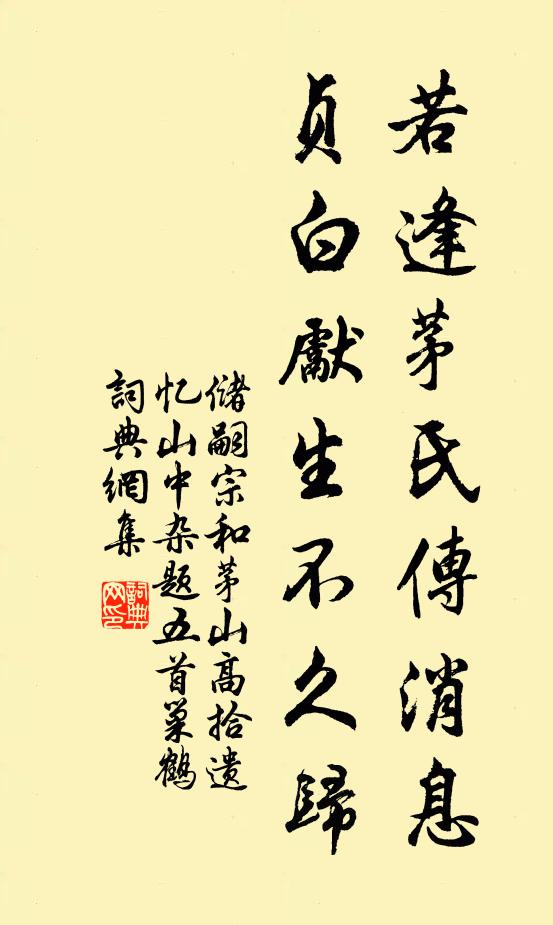 若逢茅氏傳消息
貞白獻生不久歸
儲嗣宗和茅山高拾遺
忆山中杂题五首巢鶴
詞典網集
詞典
网印